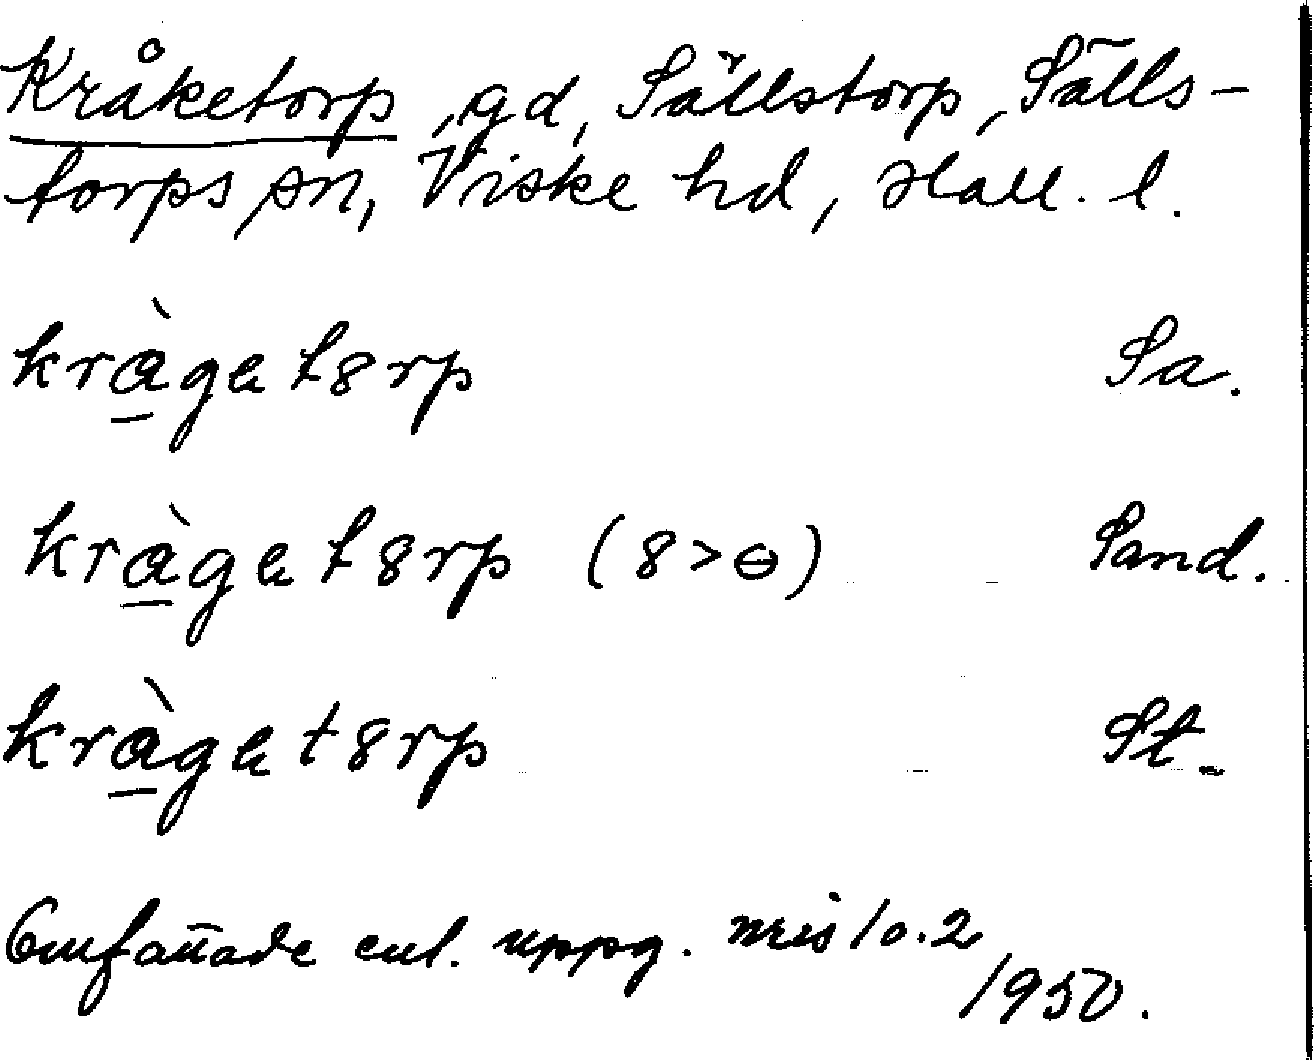 Kråketorp, gd, Sällstorp, Sälls-
torps sn, Viske hd, Hall. l.
kràget8rp Sa.
kràget8rp (8>ɵ) Sand.
kràget8rp St.
enl. uppg. nris 1 o. 2
/1950.